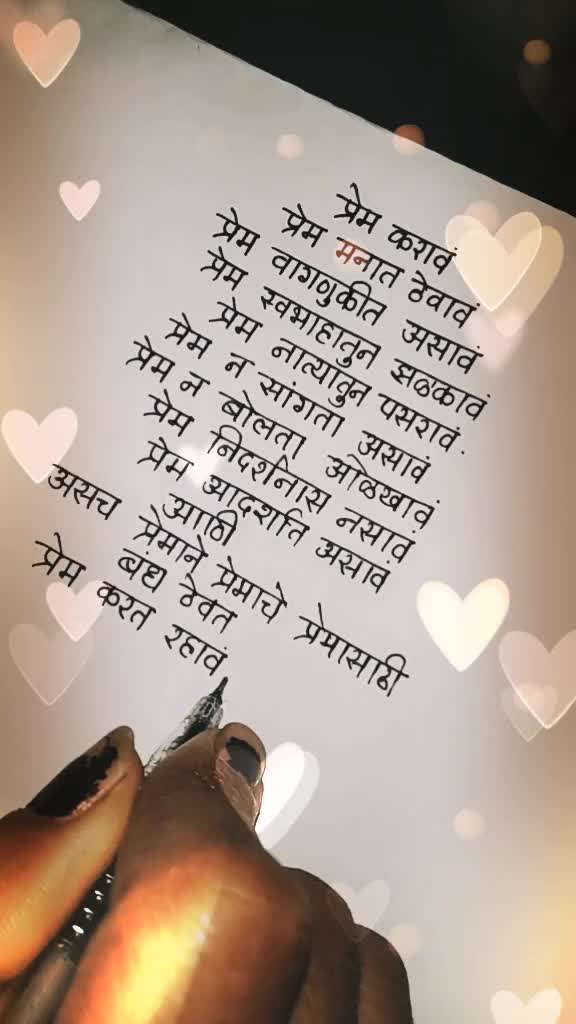 प्रेम करावं
प्रेम मनात ठेवावं
प्रेम वागणुकीत असावं
प्रेम स्वभाहातुन झळकावं
प्रेम नात्यातुन पसरावं.
प्रेम न सांगता असावं
प्रेम न बोलता ओळखावं
प्रेम निदर्शनास नसावं
प्रेम आदर्शात असावं
आणि
असच प्रेमाने प्रेमाचे प्रेमासाठी
बंध ठेवत
प्रेम करत रहावं